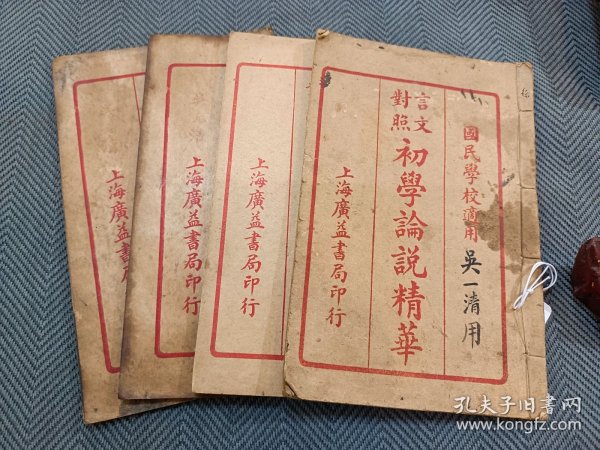 國民學校適用
吳一清用
言文對照
初學論説精華
上海廣益書局印行
上海廣益書局印行
上海廣益書局印
上海廣益書局
孔夫子旧书网
www.kongfz.com